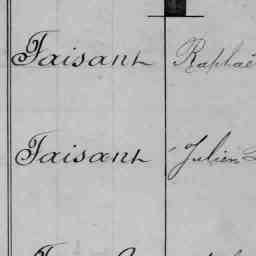 Faisant Raphaë
Faisant Julien